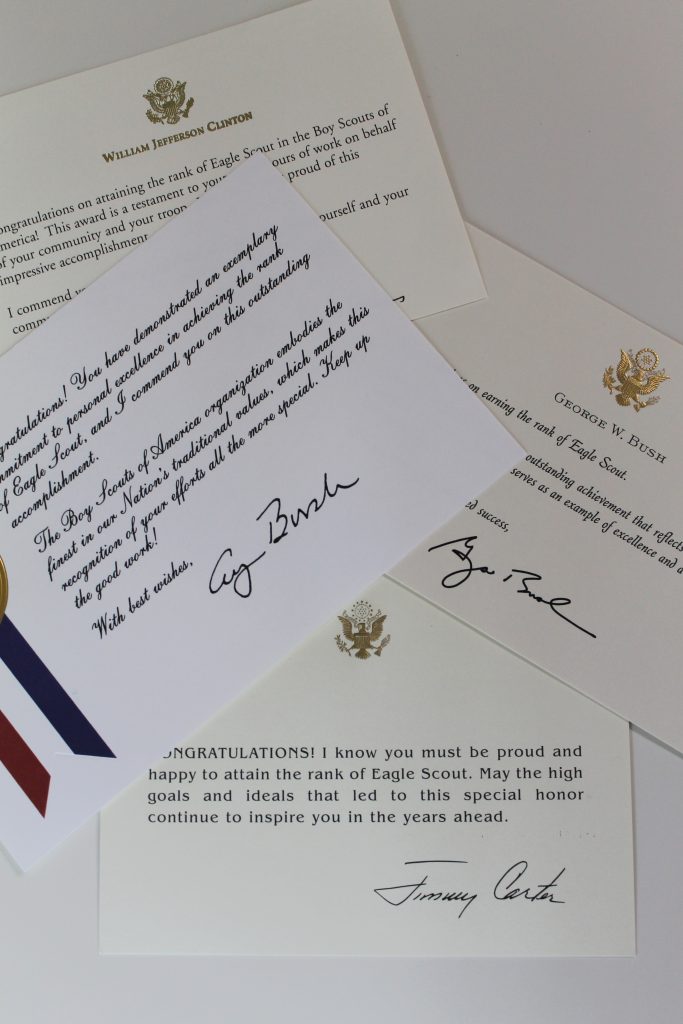 WILLIAM JEFFERSON CLINTON
ongratulations on attaining the rank of Eagle Scout in the Boy Scouts of
merica! This award is a testament to your ours of work on behalf
of your community and your troop proud of this
impressive accomplishment
ourself and your
I commend
comm
gratulations! You have demonstrated an exemplary
mmitment to personal excellence in achieving the rank
of Eagle Scout, and I commend you on this outstanding
accomplishment.
The Boy Scouts of America organization embodies the
finest in our Nation's traditional values, which makes this
recognition of your efforts all the more special. Keep up
the good work!
With best wishes,
Bush
GEORGE W. BUSH
on earning the rank of Eagle Scout.
outstanding achievement that reflects
serves as an example of excellence and a
d success,
Bush
ONGRATULATIONS! I know you must be proud and
happy to attain the rank of Eagle Scout. May the high
goals and ideals that led to this special honor
continue to inspire you in the years ahead.
Jimmy Carter